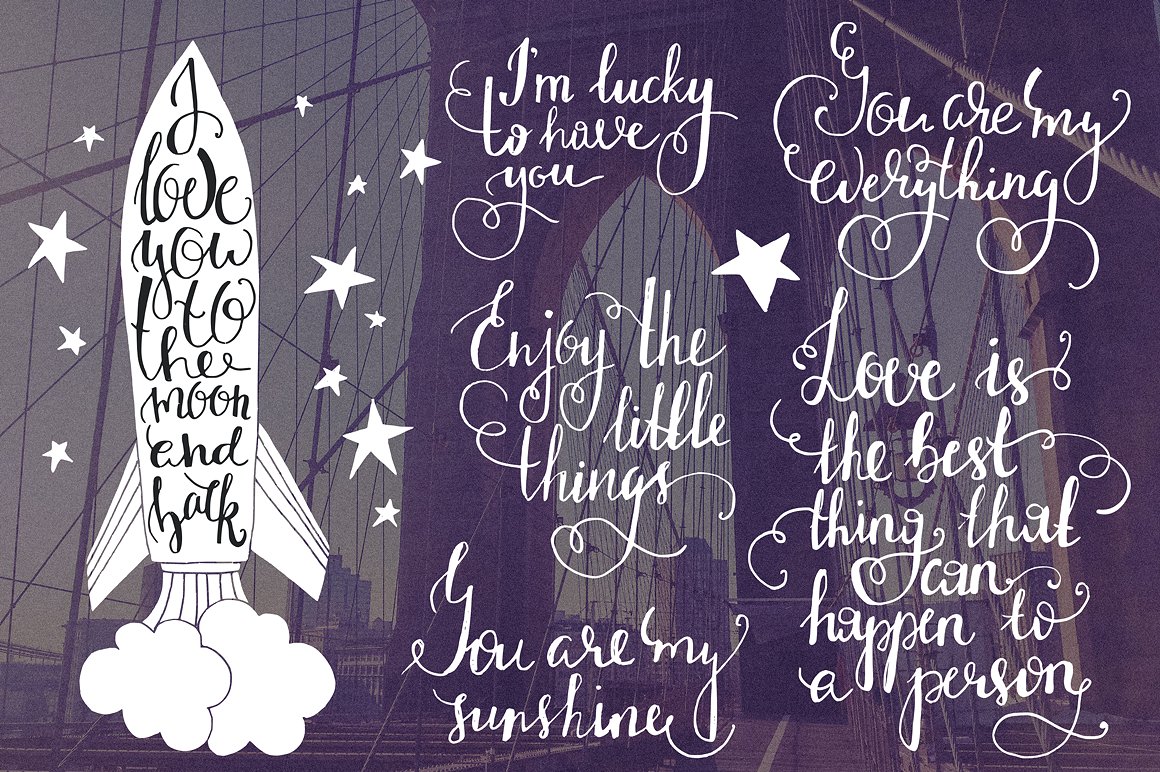 I
love
you
to
the
moon
and
back
I'm lucky
to have
you
You are my
everything
Enjoy the
little
things
Love is
the best
thing that
can
happen to
a person
You are my
sunshine